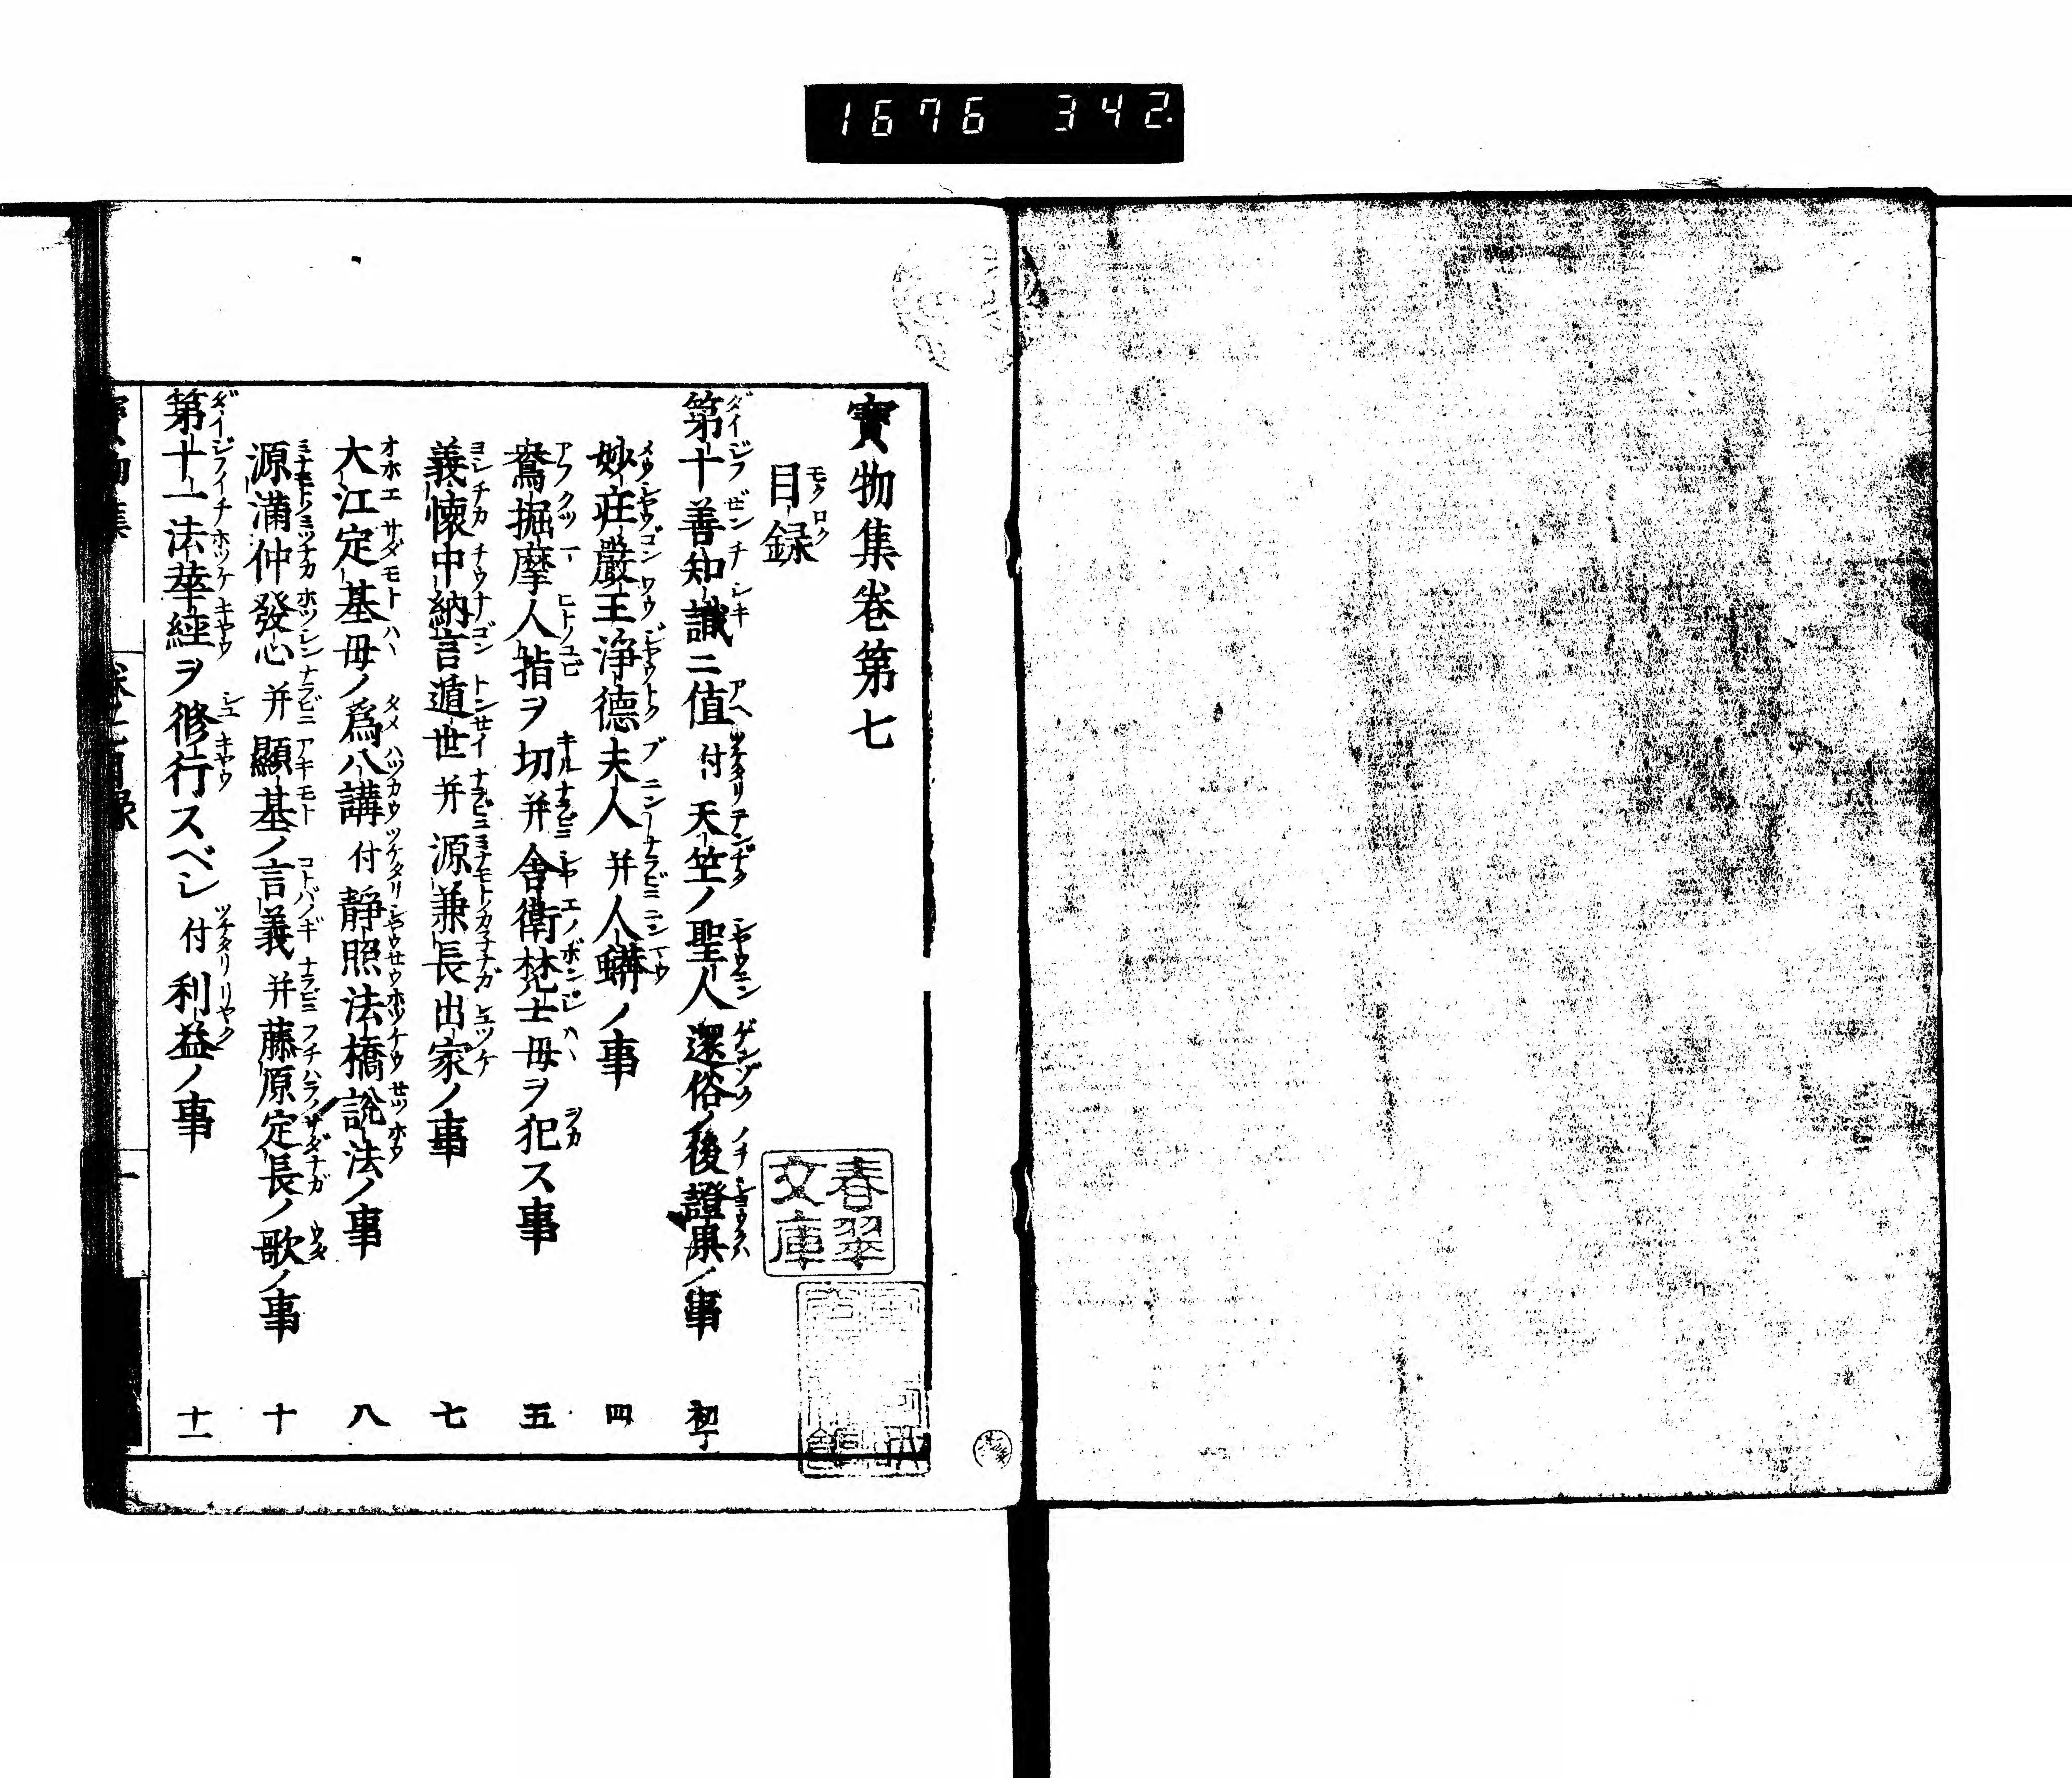 1676 342.
寳物集卷第七
目録
第十善知識ニ値 付 天竺ノ聖人還俗ノ後證果ノ事 初丁
妙荘嚴王淨德夫人 并 人蠎ノ事 四
鴦掘摩人指ヲ切 并 舎衛梵士母ヲ犯ス事 五
義懐中納言遁世 并 源兼長出家ノ事 七
大江定基母ノ爲八講 付 静照法橋説法ノ事 八
源滿仲發心 并 顯基ノ言義 并 藤原定長ノ歌ノ事 十
第十一法華經ヲ修行スベシ 付 利益ノ事 十一
春翠文庫